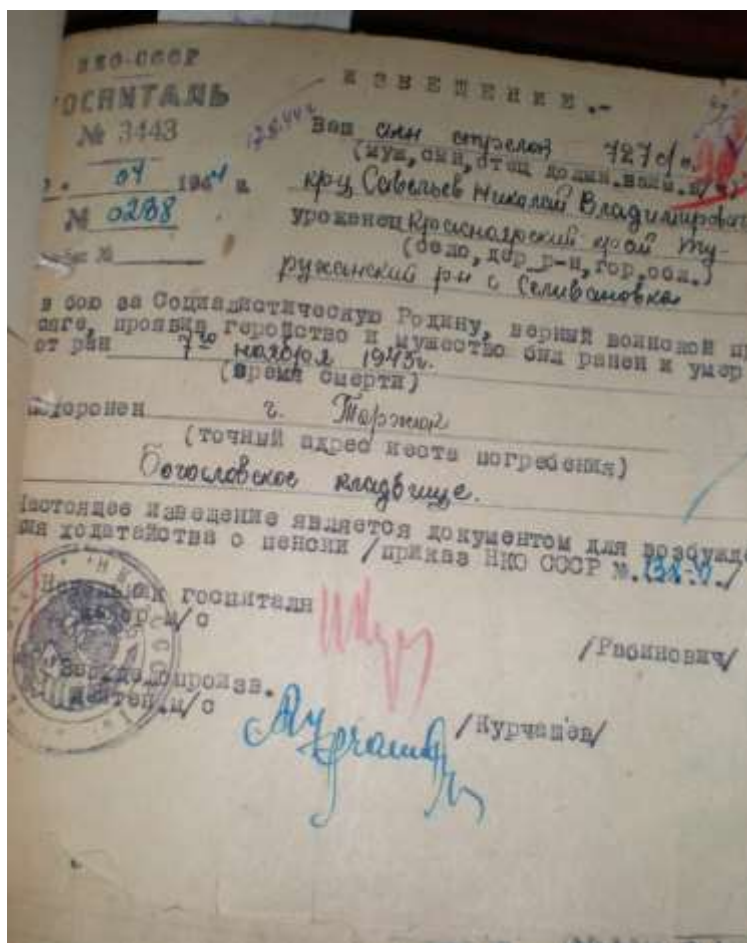 НКО-СССР
ГОСПИТАЛЬ
№ 3443
04 1944 г.
№ 0238
ИЗВЕЩЕНИЕ.-
Ваш сын стрелок 727 с/п.
(муж, сын, отец
кр-ц Савельев Николай Владимирович
уроженец Красноярский край Ту-
(село, дер. р-н, гор. обл.)
руханский р-н с Селивановка
в бою за Социалистическую Родину, верный воинской
проявив геройство и мужество был ранен и умер
от ран 7го ноября 1943г.
(время смерти)
г. Торжок
(точный адрес места погребения)
Богословское кладбище.
Настоящее извещение является документом для возбужде
ходатайства о пенсии /приказ НКО СССР №.
госпиталя
м/с
/Рабинович/
м/с
/Курчашев/